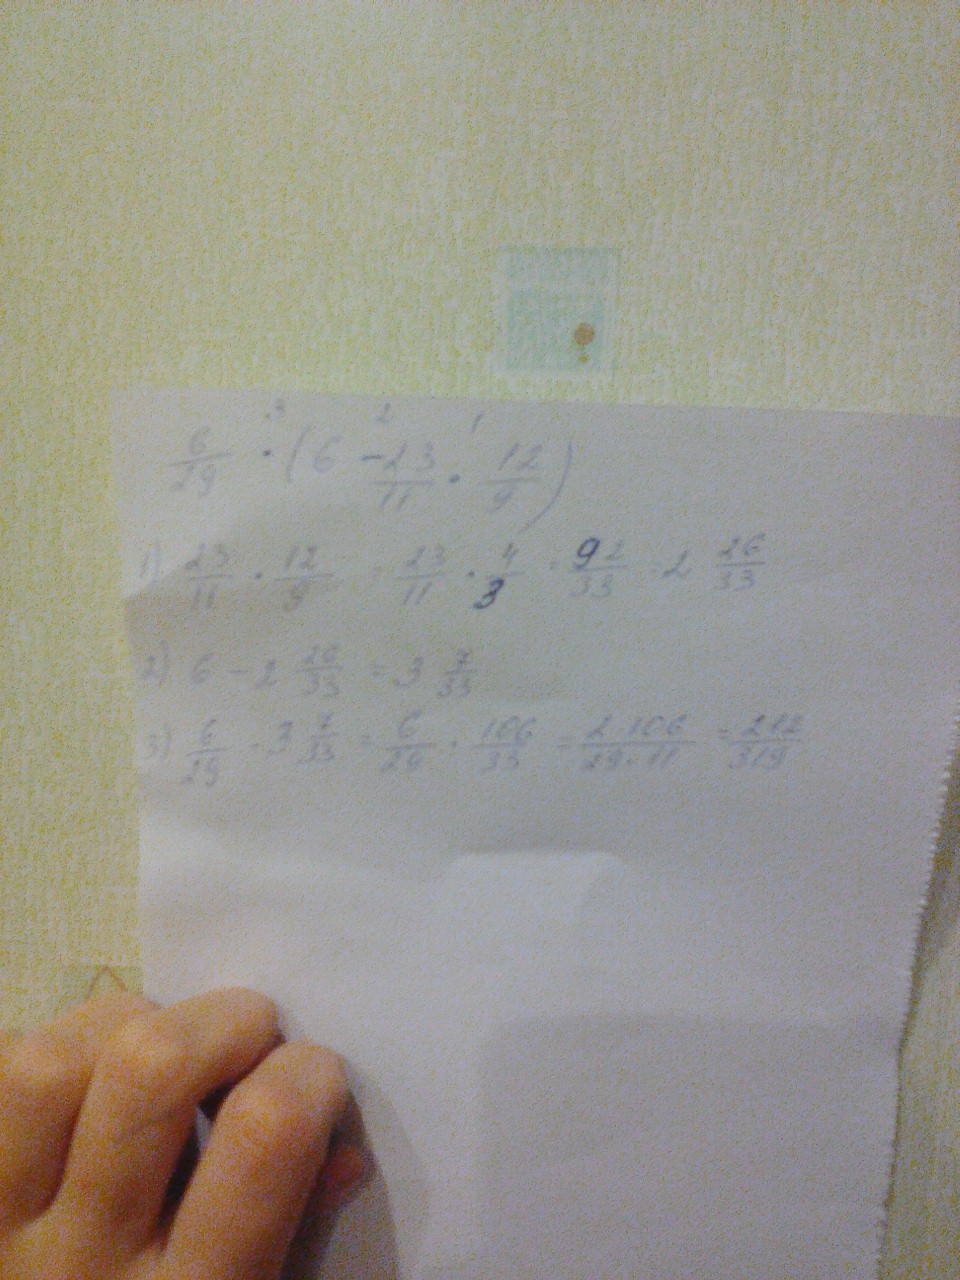 3 2 1
6/29 · (6 - 23/11 · 12/9)
1) 23/11 · 12/9 = 23/11 · 4/3 = 92/33 = 2 26/33
2) 6 - 2 26/33 = 3 7/33
3) 6/29 · 3 7/33 = 6/29 · 106/33 = 2·106/29·11 = 212/319